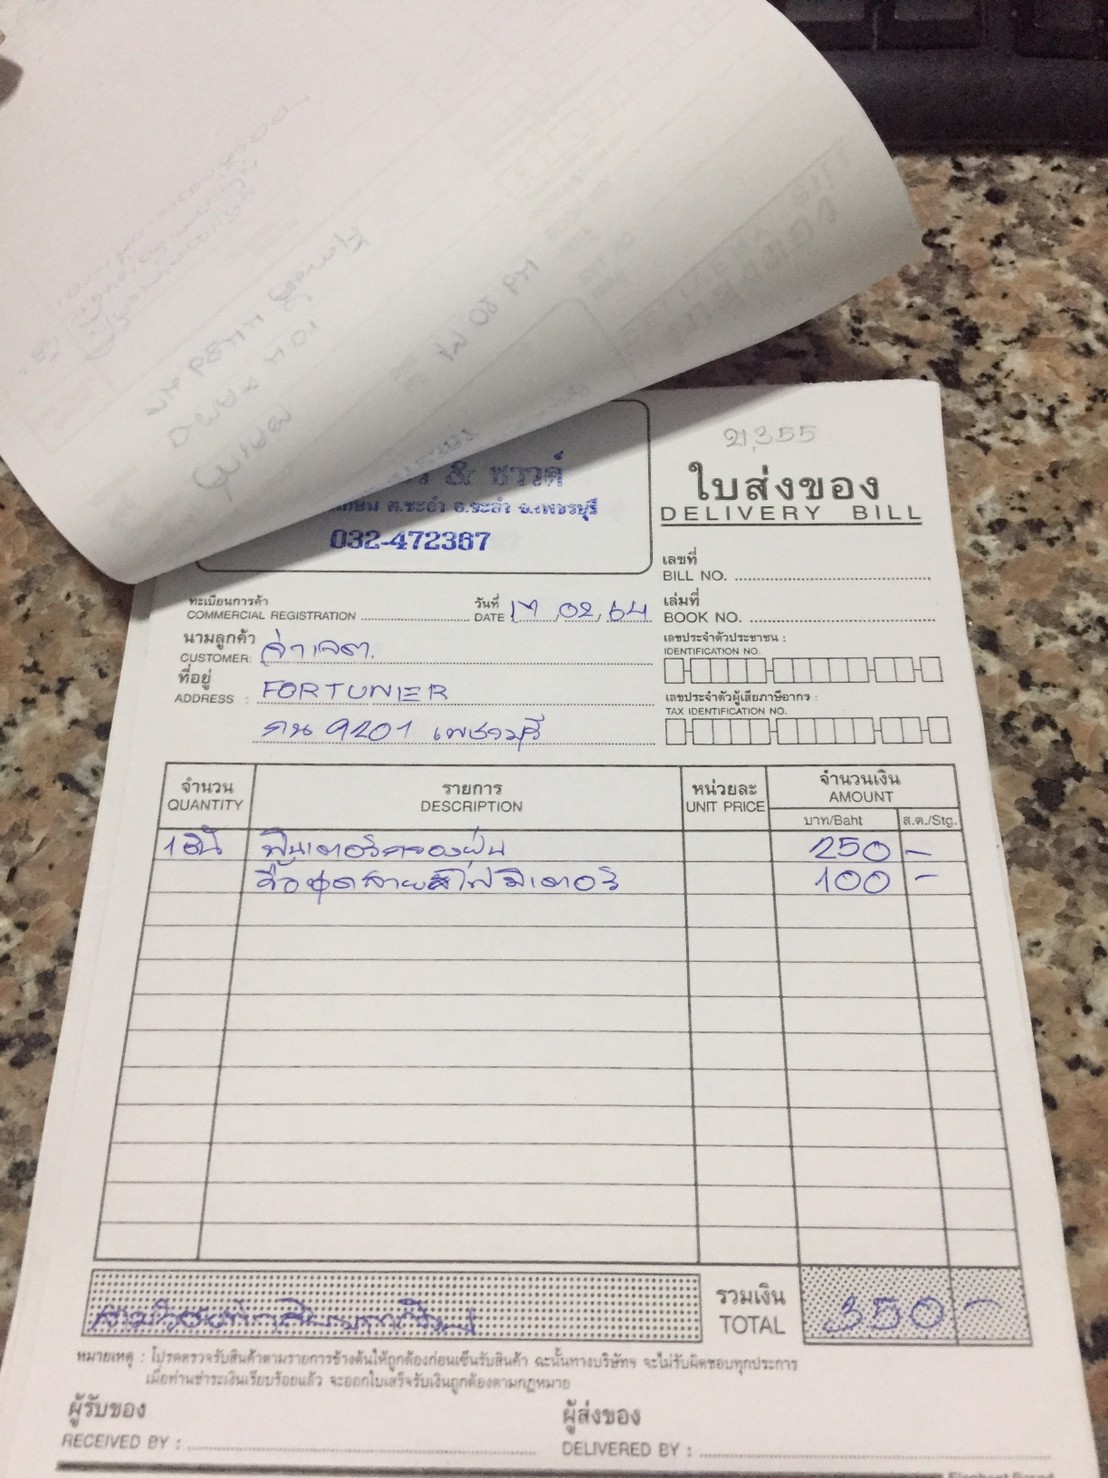 & ชวาศ์
ต.ชะอำ อ.ชะอำ จ.เพชรบุรี
032-472367
21,355
ใบส่งของ
DELIVERY BILL
เลขที่
BILL NO.
ทะเบียนการค้า
COMMERCIAL REGISTRATION
วันที่ 17 / 02 / 64
DATE
เล่มที่
BOOK NO.
นามลูกค้า จ่าเจต.
CUSTOMER:
เลขประจำตัวประชาชน :
IDENTIFICATION NO.
ที่อยู่
ADDRESS : FORTUNER
เลขประจำตัวผู้เสียภาษีอากร :
TAX IDENTIFICATION NO.
กน 9201 เพชรบุรี
จำนวน รายการ หน่วยละ จำนวนเงิน
QUANTITY DESCRIPTION UNIT PRICE AMOUNT
บาท/Baht ส.ต./Stg.
1 อัน ฟิวเตอร์กรองฝุ่น 250 -
ชุดสายไฟมิเตอร์ 100 -
รวมเงิน 350 -
TOTAL
สามร้อยห้าสิบบาทถ้วน
หมายเหตุ : โปรดตรวจรับสินค้าตามรายการข้างต้นให้ถูกต้องก่อนเซ็นรับสินค้า ฉะนั้นทางบริษัทฯ จะไม่รับผิดชอบทุกประการ
เมื่อท่านชำระเงินเรียบร้อยแล้ว จะออกใบเสร็จรับเงินถูกต้องตามกฎหมาย
ผู้รับของ ผู้ส่งของ
RECEIVED BY : DELIVERED BY :